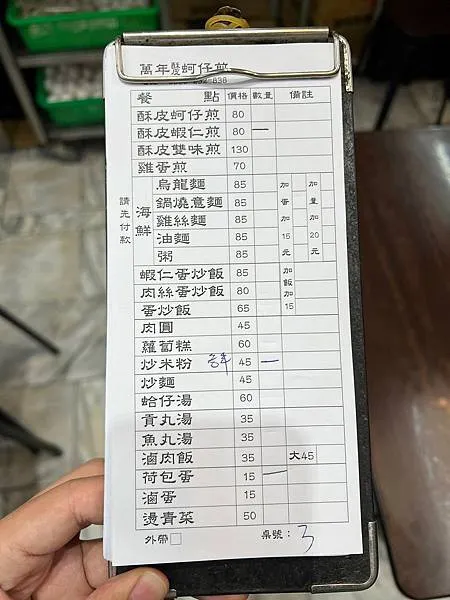 萬年酥皮蚵仔煎
餐點 價格 數量 備註
酥皮蚵仔煎 80
酥皮蝦仁煎 80 一
酥皮雙味煎 130
雞蛋煎 70
請先付款
海鮮
烏龍麵 85
鍋燒意麵 85
雞絲麵 85
油麵 85
粥 85
加蛋加15元
加量加20元
蝦仁蛋炒飯 85
肉絲蛋炒飯 80
蛋炒飯 65
加飯加15
肉圓 45
蘿蔔糕 60
炒米粉 45 一
炒麵 45
蛤仔湯 60
貢丸湯 35
魚丸湯 35
滷肉飯 35 大45
荷包蛋 15 一
滷蛋 15
燙青菜 50
外帶□ 桌號：3